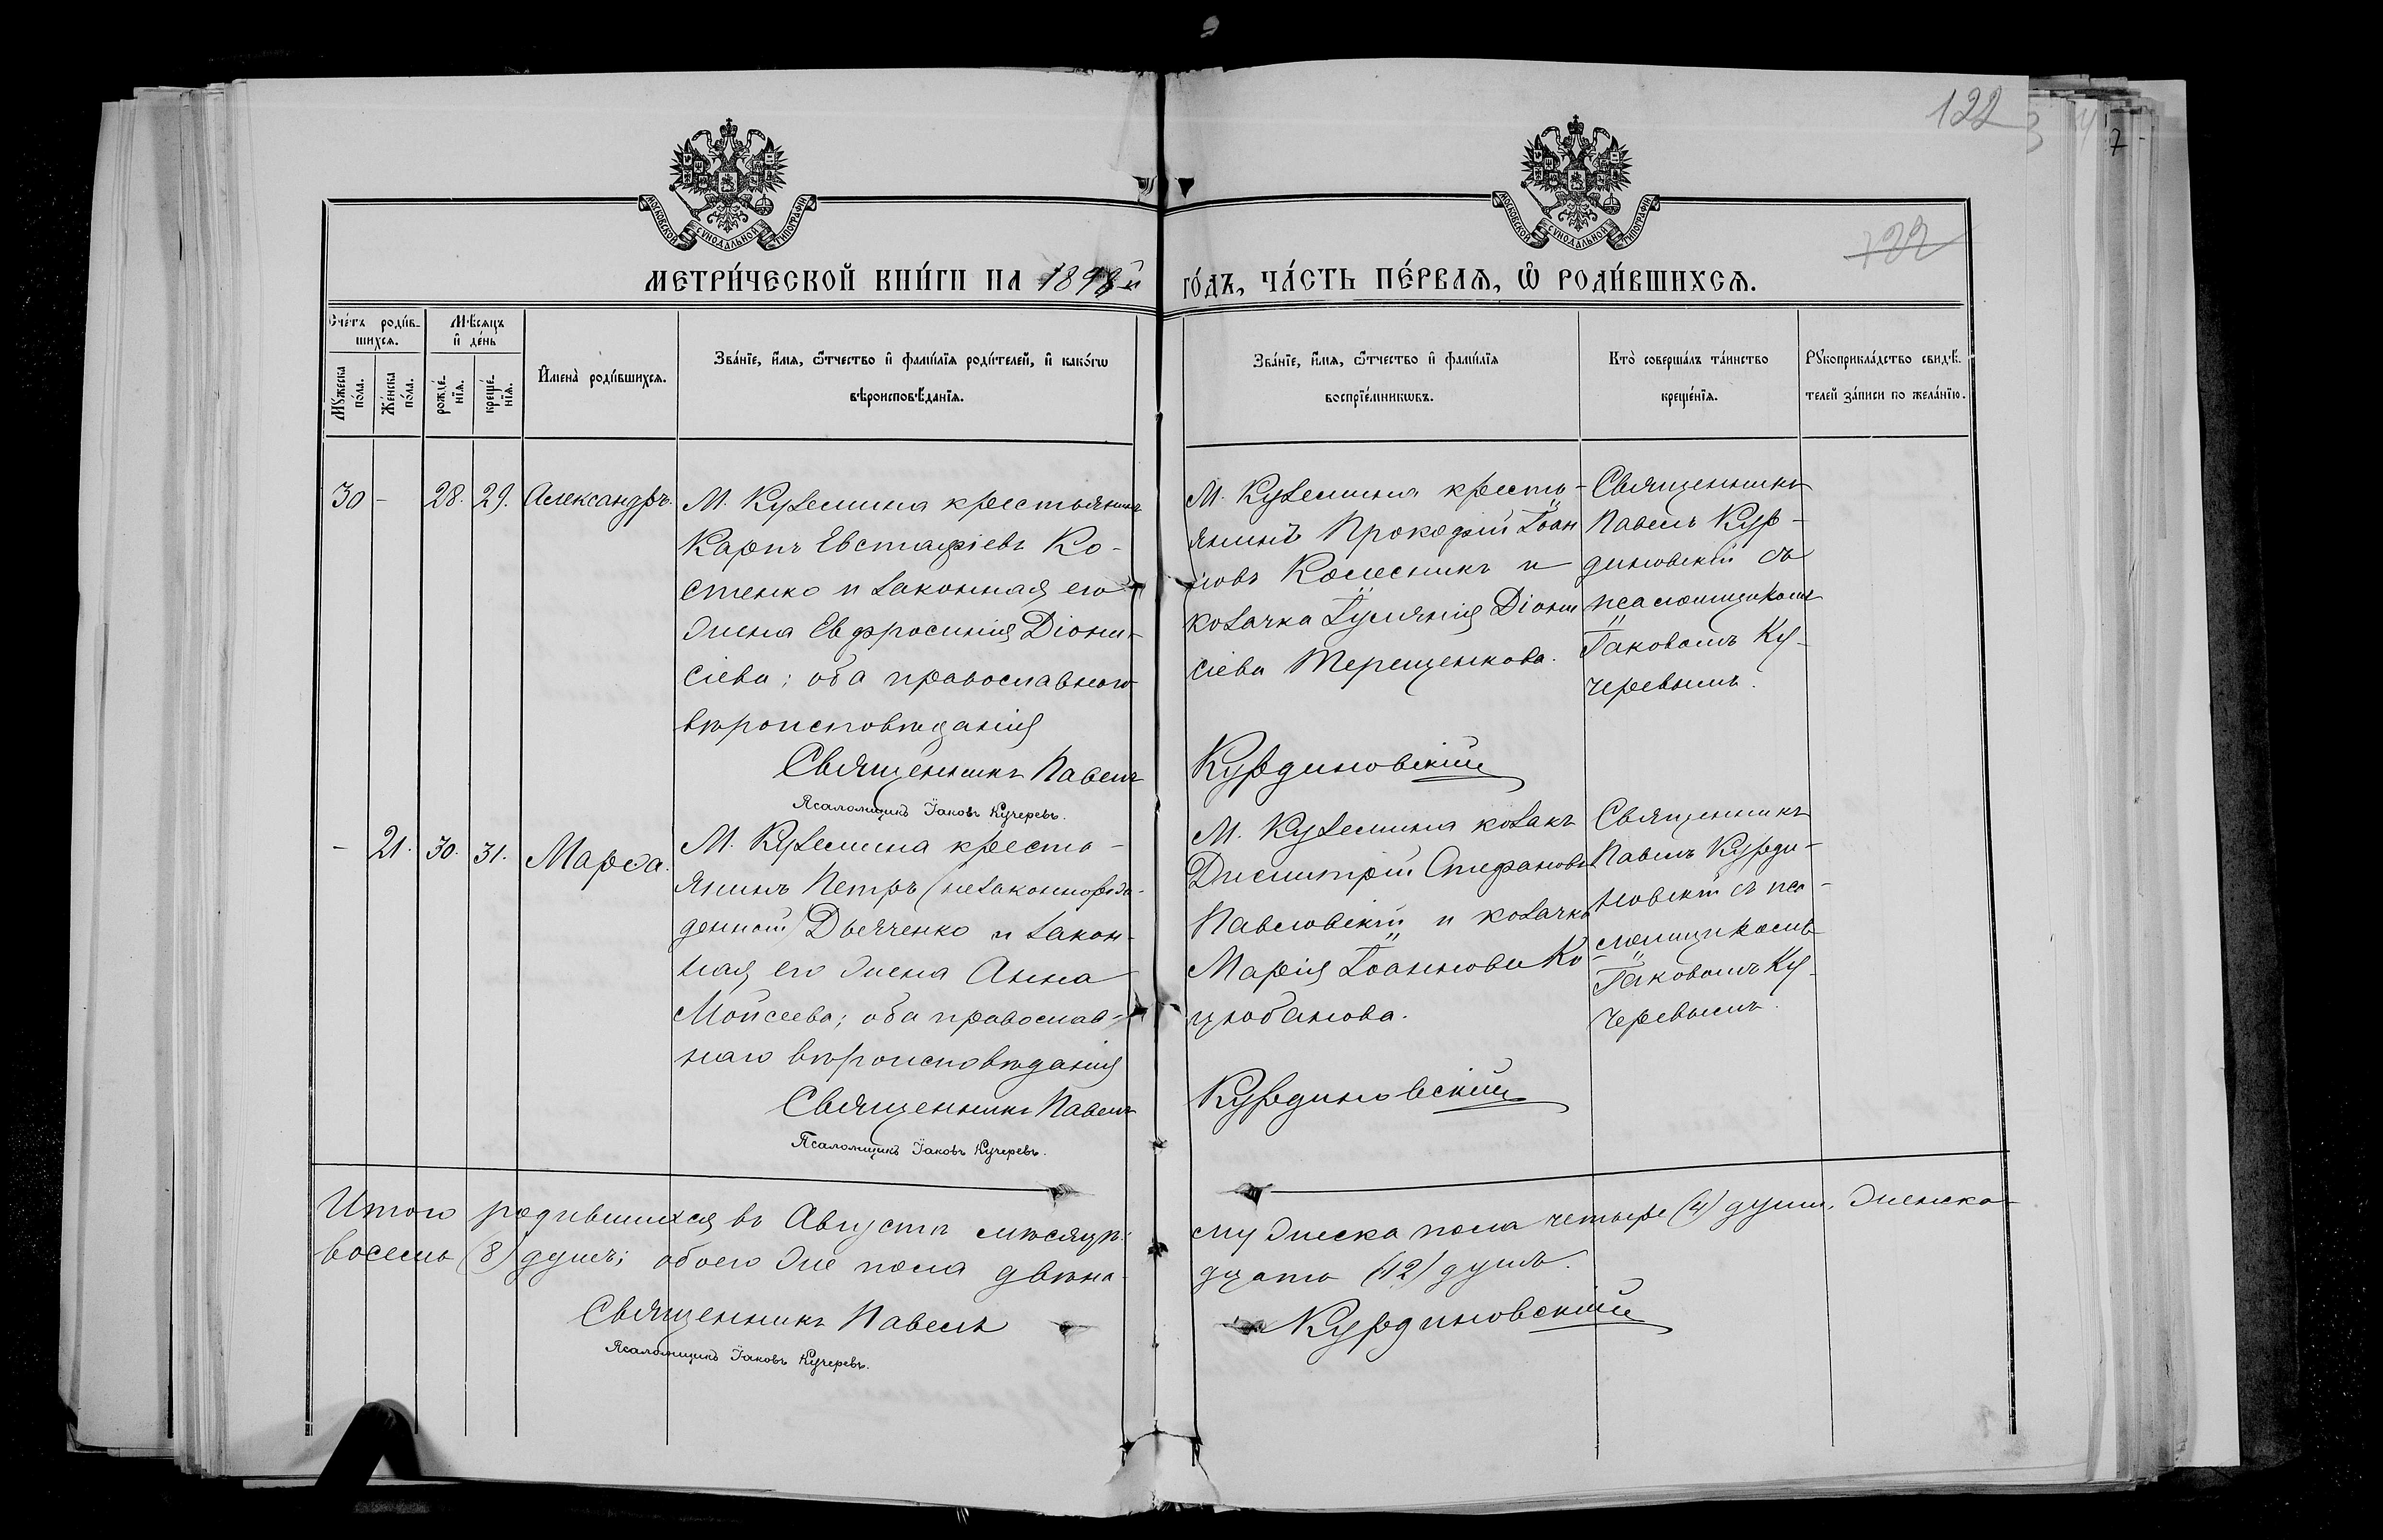 122
122
МОСКОВСКОЙ СѴНОДАЛЬНОЙ ТИПОГРАФІИ
МОСКОВСКОЙ СѴНОДАЛЬНОЙ ТИПОГРАФІИ
МЕТРИ́ЧЕСКОЙ КНИ́ГИ НА 1898й го́дъ, ЧА́СТЬ ПЕ́РВАѦ, Ѡ҆ РОДИ́ВШИХСѦ.
Сче́тъ роди́в-
шихсѧ.
Мꙋ́жеска по́ла.
Же́нска по́ла.
Мѣ́сѧцъ
и҆ де́нь
рожде́-
нїѧ.
креще́-
нїѧ.
И҆мена̀ роди́вшихсѧ.
Зва́нїе, и҆́мѧ, ѻ҆́тчество и҆ фамѝлїѧ роди́телей, и҆ како́гѡ
вѣроисповѣ́данїѧ.
Зва́нїе, и҆́мѧ, ѻ҆́тчество и҆ фами́лїѧ
воспрїе́мникѡвъ.
Кто̀ соверша́лъ та́инство
креще́нїѧ.
Рꙋкоприкла́дство свидѣ́-
телей за́писи по жела́нїю.
30 - 28. 29. Александръ.
М. Куземина крестьянинъ
Карпъ Евстафіевъ Ко-
стенко и законная его
жена Евфросинія Діони-
сіева; оба православнаго
вѣроисповѣданія
Священникъ Павелъ Курдиновскій
Псаломщикъ Іаковъ Кучеревъ.
М. Куземина кресть-
янинъ Прокофій Іоан
новъ Колесникъ и
козачка Іуліянія Діони
сіева Терещенкова.
Священникъ
Павелъ Кур-
диновскій съ
псаломщикомъ
Іаковомъ Ку-
черевымъ.
- 21. 30. 31. Марѳа.
М. Куземина кресть-
янинъ Петръ (незаконнорож-
денный) Дьяченко и закон-
ная его жена Анна
Моисеева; оба православ-
наго вѣроисповѣданія
Священникъ Павелъ Курдиновскій
Псаломщикъ Іаковъ Кучеревъ.
М. Куземина козакъ
Димитрій Стефановъ
Павловскій и козачка
Марія Іоаннова Ко
цюбанова.
Священникъ
Павелъ Курди-
новскій съ пса-
ломщикомъ
Іаковомъ Ку-
черевымъ.
Итого родившихся въ Августѣ мѣсяцѣ: мужеска пола четыре (4) души, женска-
восемь (8) душъ; обоего же пола двѣна-дцать (12) душъ.
Священникъ Павелъ Курдиновскій
Псаломщикъ Іаковъ Кучеревъ.